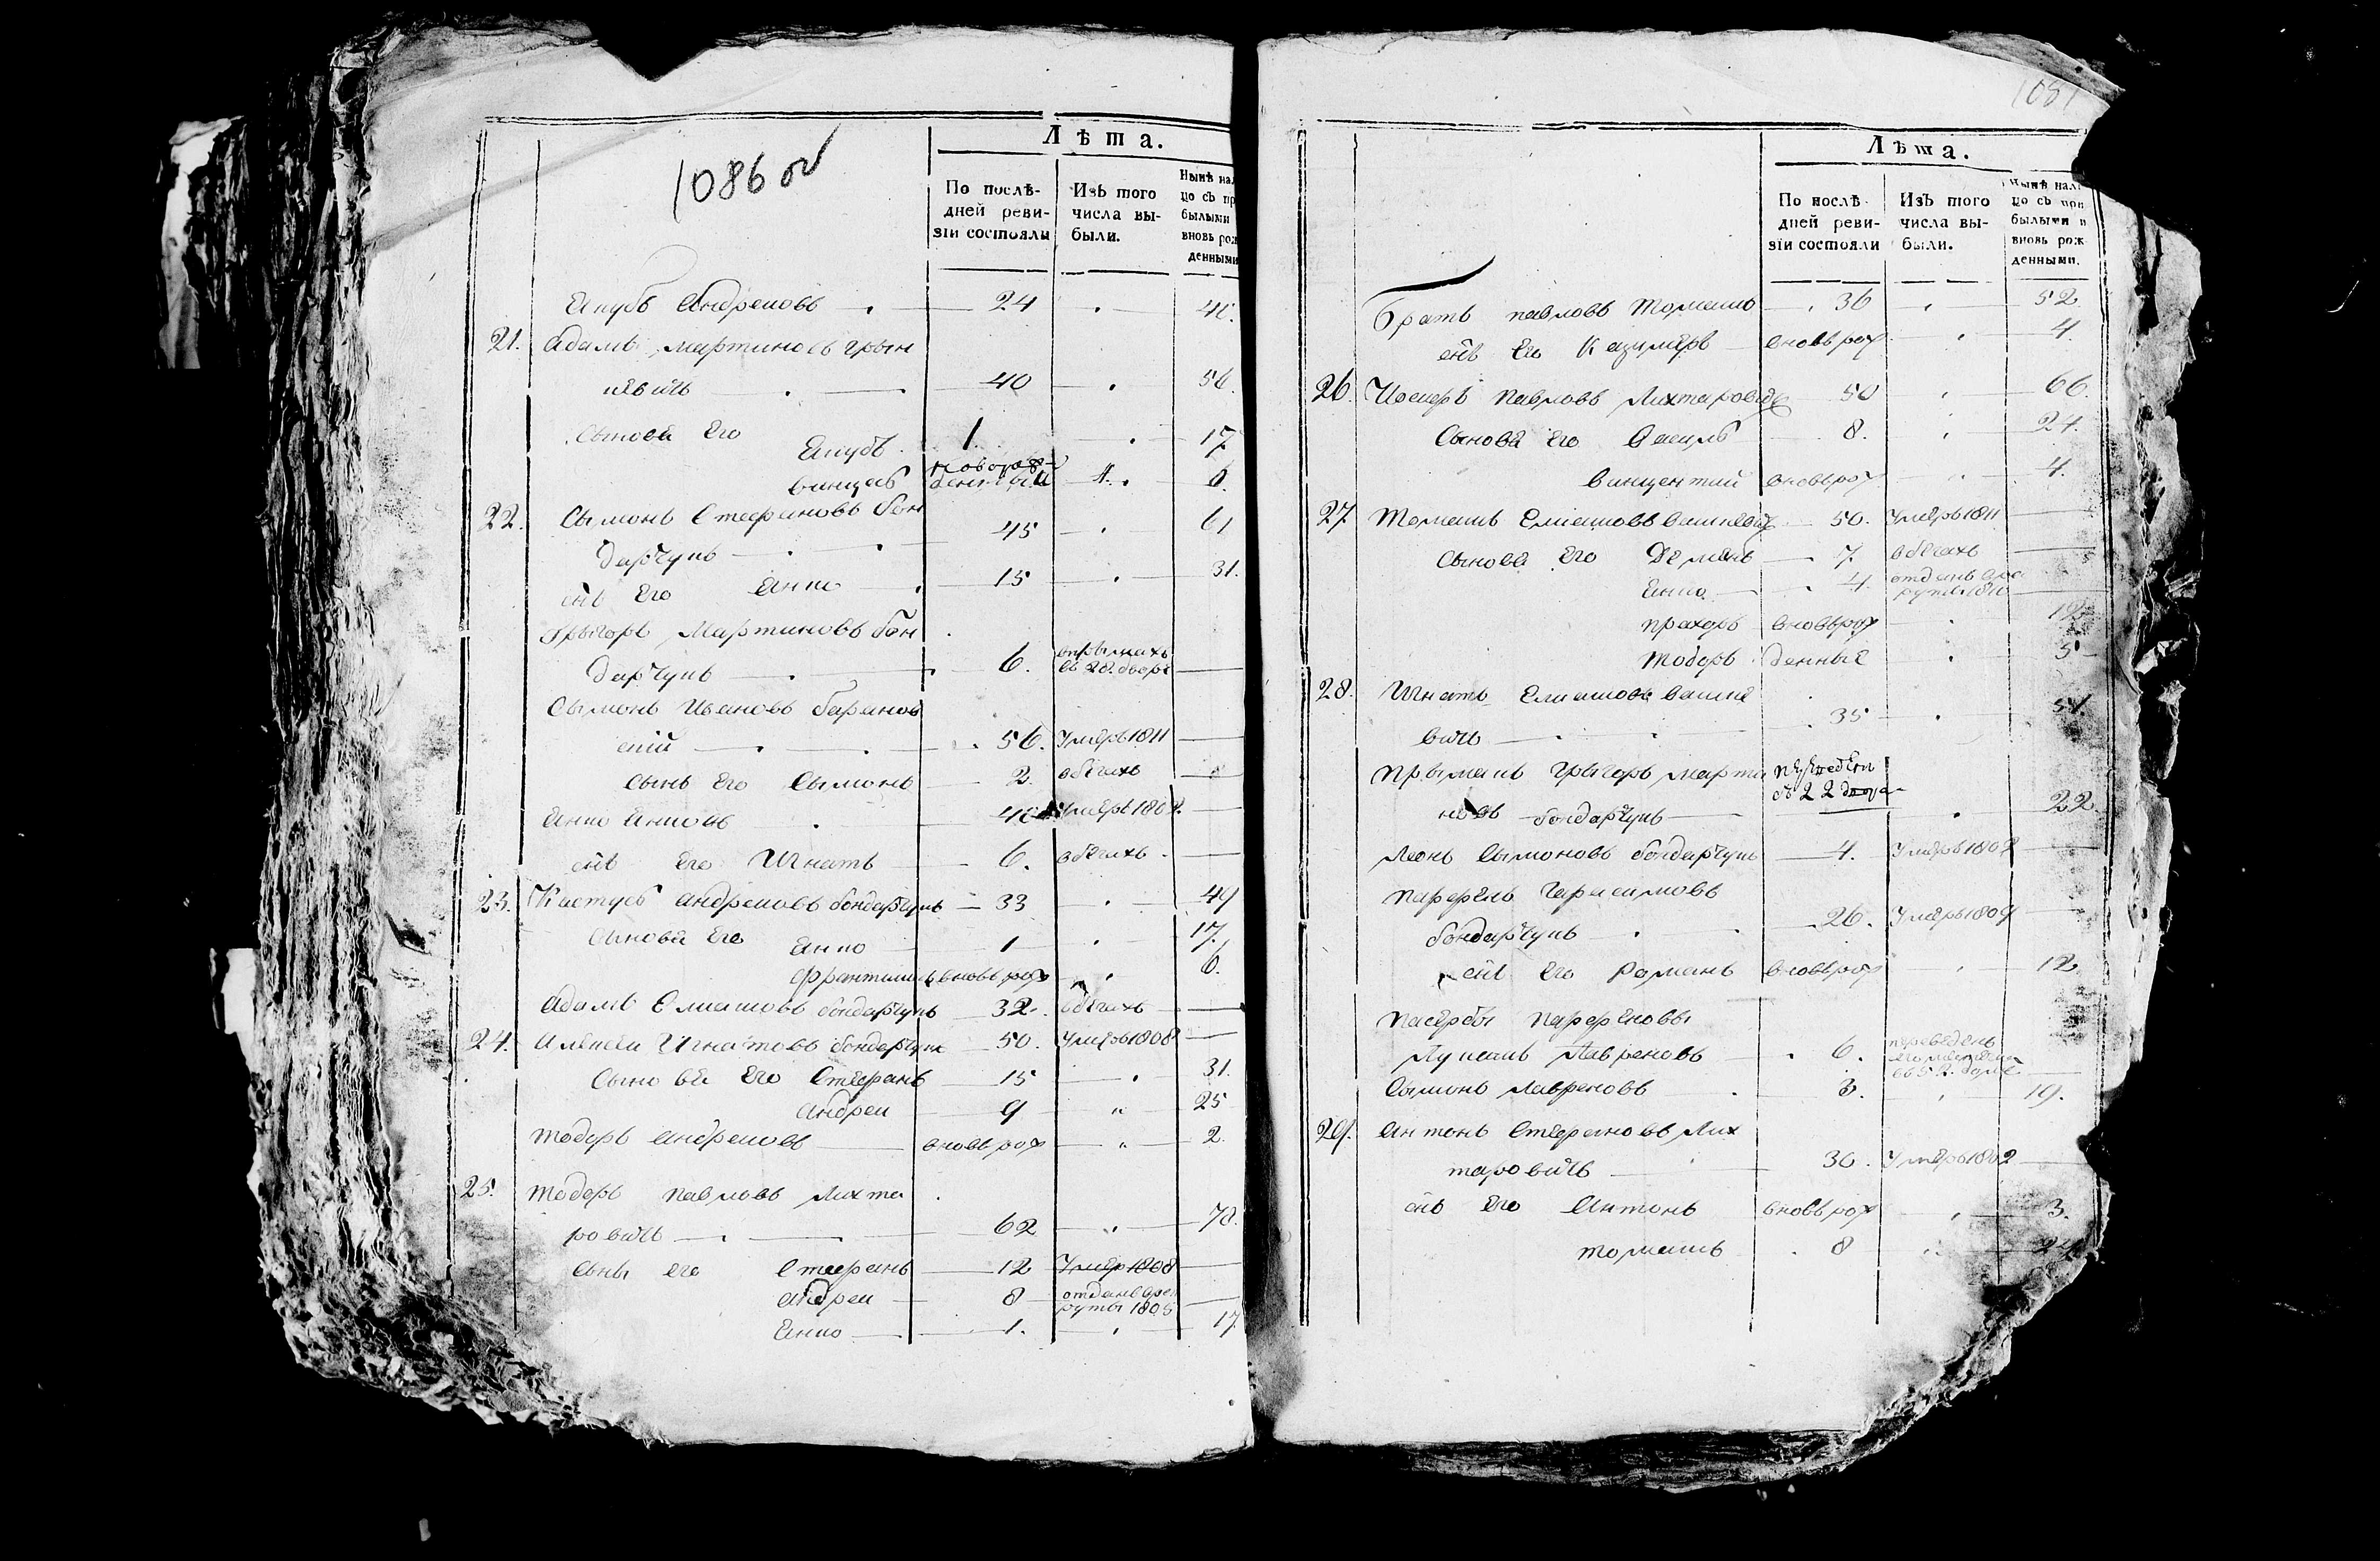 1086 об
Лѣта.
По послѣ-
дней реви-
зіи состояли
Изъ того
числа вы-
были.
Нынѣ нал
цо съ пр
былыми
вновь рож
денными
Якубъ Андреіовъ 24
21. Адамъ Мартиновъ Грын
кевичъ 40 56.
Сынова Его Якубъ 1. 17
Винцесь новорож-
денный 6.
22. Сымонъ Стефановъ Бон
дарчукъ 45 61
снъ Его Янко 15 31.
Грыгоръ Мартиновъ Бон
дарчукъ 6. въ 28. дворѣ
Сымонъ Ивановъ Баранов
скій 56. Умеръ 1811
Сынъ Его Сымонъ 2. вбегахъ
Янко Янковъ Умеръ
снъ Его Игнатъ 6. вбегахъ
23. Кастусь Андреіовъ Бондарчукъ 33 49
Сынова Его Янко 1 17.
Францишекъ вновь рож 6.
Адамъ Елиашовъ Бондарчукъ 32. вбегахъ
24. Алексеи Игнатовъ Бондарчукъ 50. Умеръ 1808
Сынова Его Стефанъ 15 31.
Андреи 9 25
Тодоръ Андреіовъ вновь рож 2.
25. Тодоръ Павловъ Лихта
ровичъ 62 78.
Сны его Стефанъ 12 Умеръ 1808
Андреи 8 отданъ врек
руты 1805
Янко 1. 17
1087
Лѣта.
По послѣ-
дней реви-
зіи состояли
Изъ того
числа вы-
были.
Нынѣ нали
цо съ при
былыми и
вновь рож
денными.
Братъ Павловъ Томашъ 36 52
снъ Его Казимеръ вновь рож 4.
26. Иосифъ Павловъ Лихтаровичъ 50 66.
Сынова Его Василь 8. 24.
Винцентий вновь рож 4.
27 Томашъ Елиашовъ Вашкевич 50. Умеръ 1811
Сынова Его Демянъ 7. вбегахъ
Янко 4. отданъ врек
руты 1810
Прахоръ вновь рож 12
Тодоръ денные 5
28. Игнатъ Елиашовъ Вашке
вичъ 35 51.
Прымакъ Грыгоръ Марти
новъ Бондарчукъ переведен
съ 22 двора 22.
Леонъ Сымоновъ Бондарчукъ 4. Умеръ
Парфенъ Гарасимовъ
Бондарчукъ 26. Умеръ 1809
снъ Его Романъ вновь рож 12
Пасербы Парфеновы
Лукашъ Лавреновъ 6. переведенъ
Сымонъ Лавреновъ 3. 19.
29. Антонъ Стефановъ Лих
таровичъ 30. Умеръ 1802
снъ Его Антонъ вновь рож 3.
Томашъ 8 24